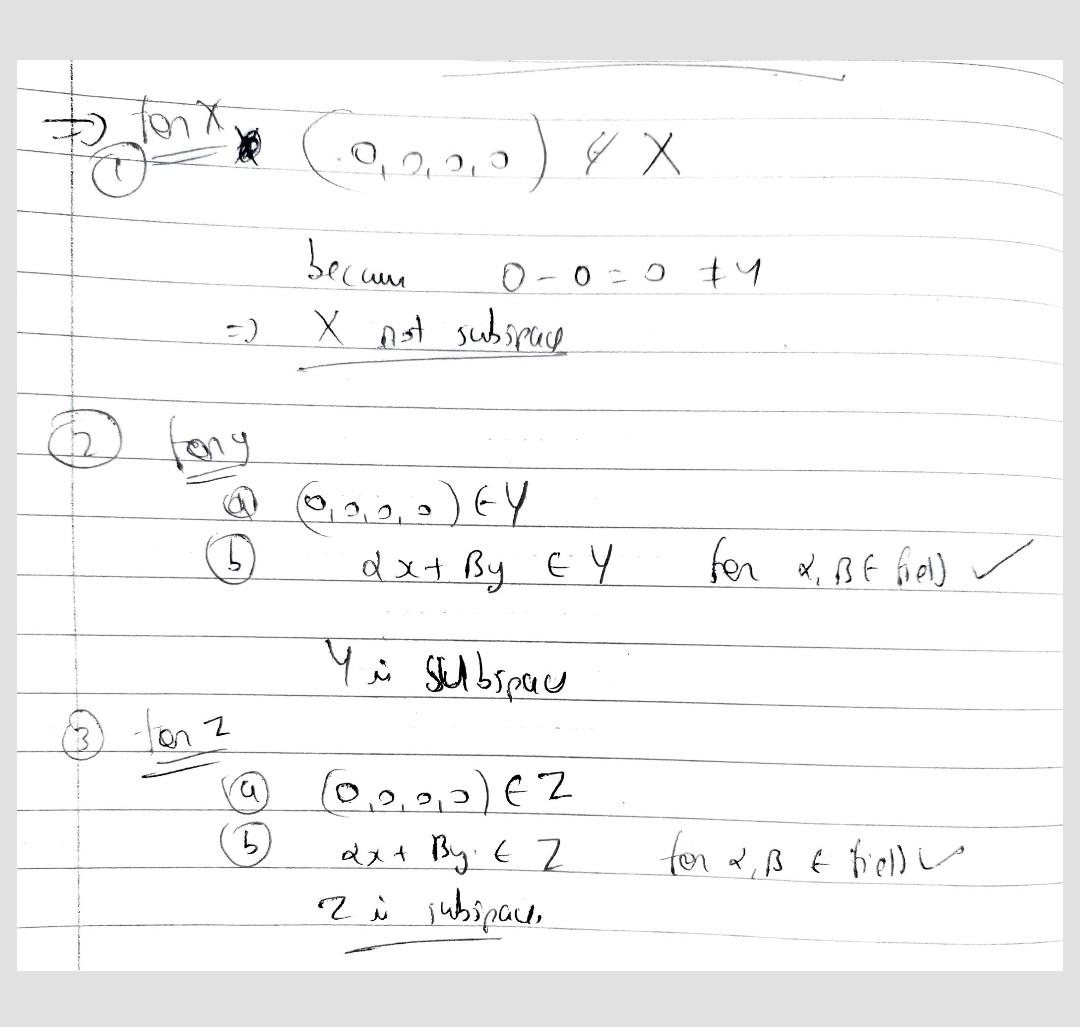 => for X
① (0,0,0,0) ∉ X
becaus 0-0=0 ≠ 4
=> X not subspace
② for y
ⓐ (0,0,0,0) ∈ Y
ⓑ αx + By ∈ Y for α, B ∈ field ✓
Y is subspace
③ for Z
ⓐ (0,0,0,0) ∈ Z
ⓑ αx + By ∈ Z for α, B ∈ field ✓
Z is subspace.